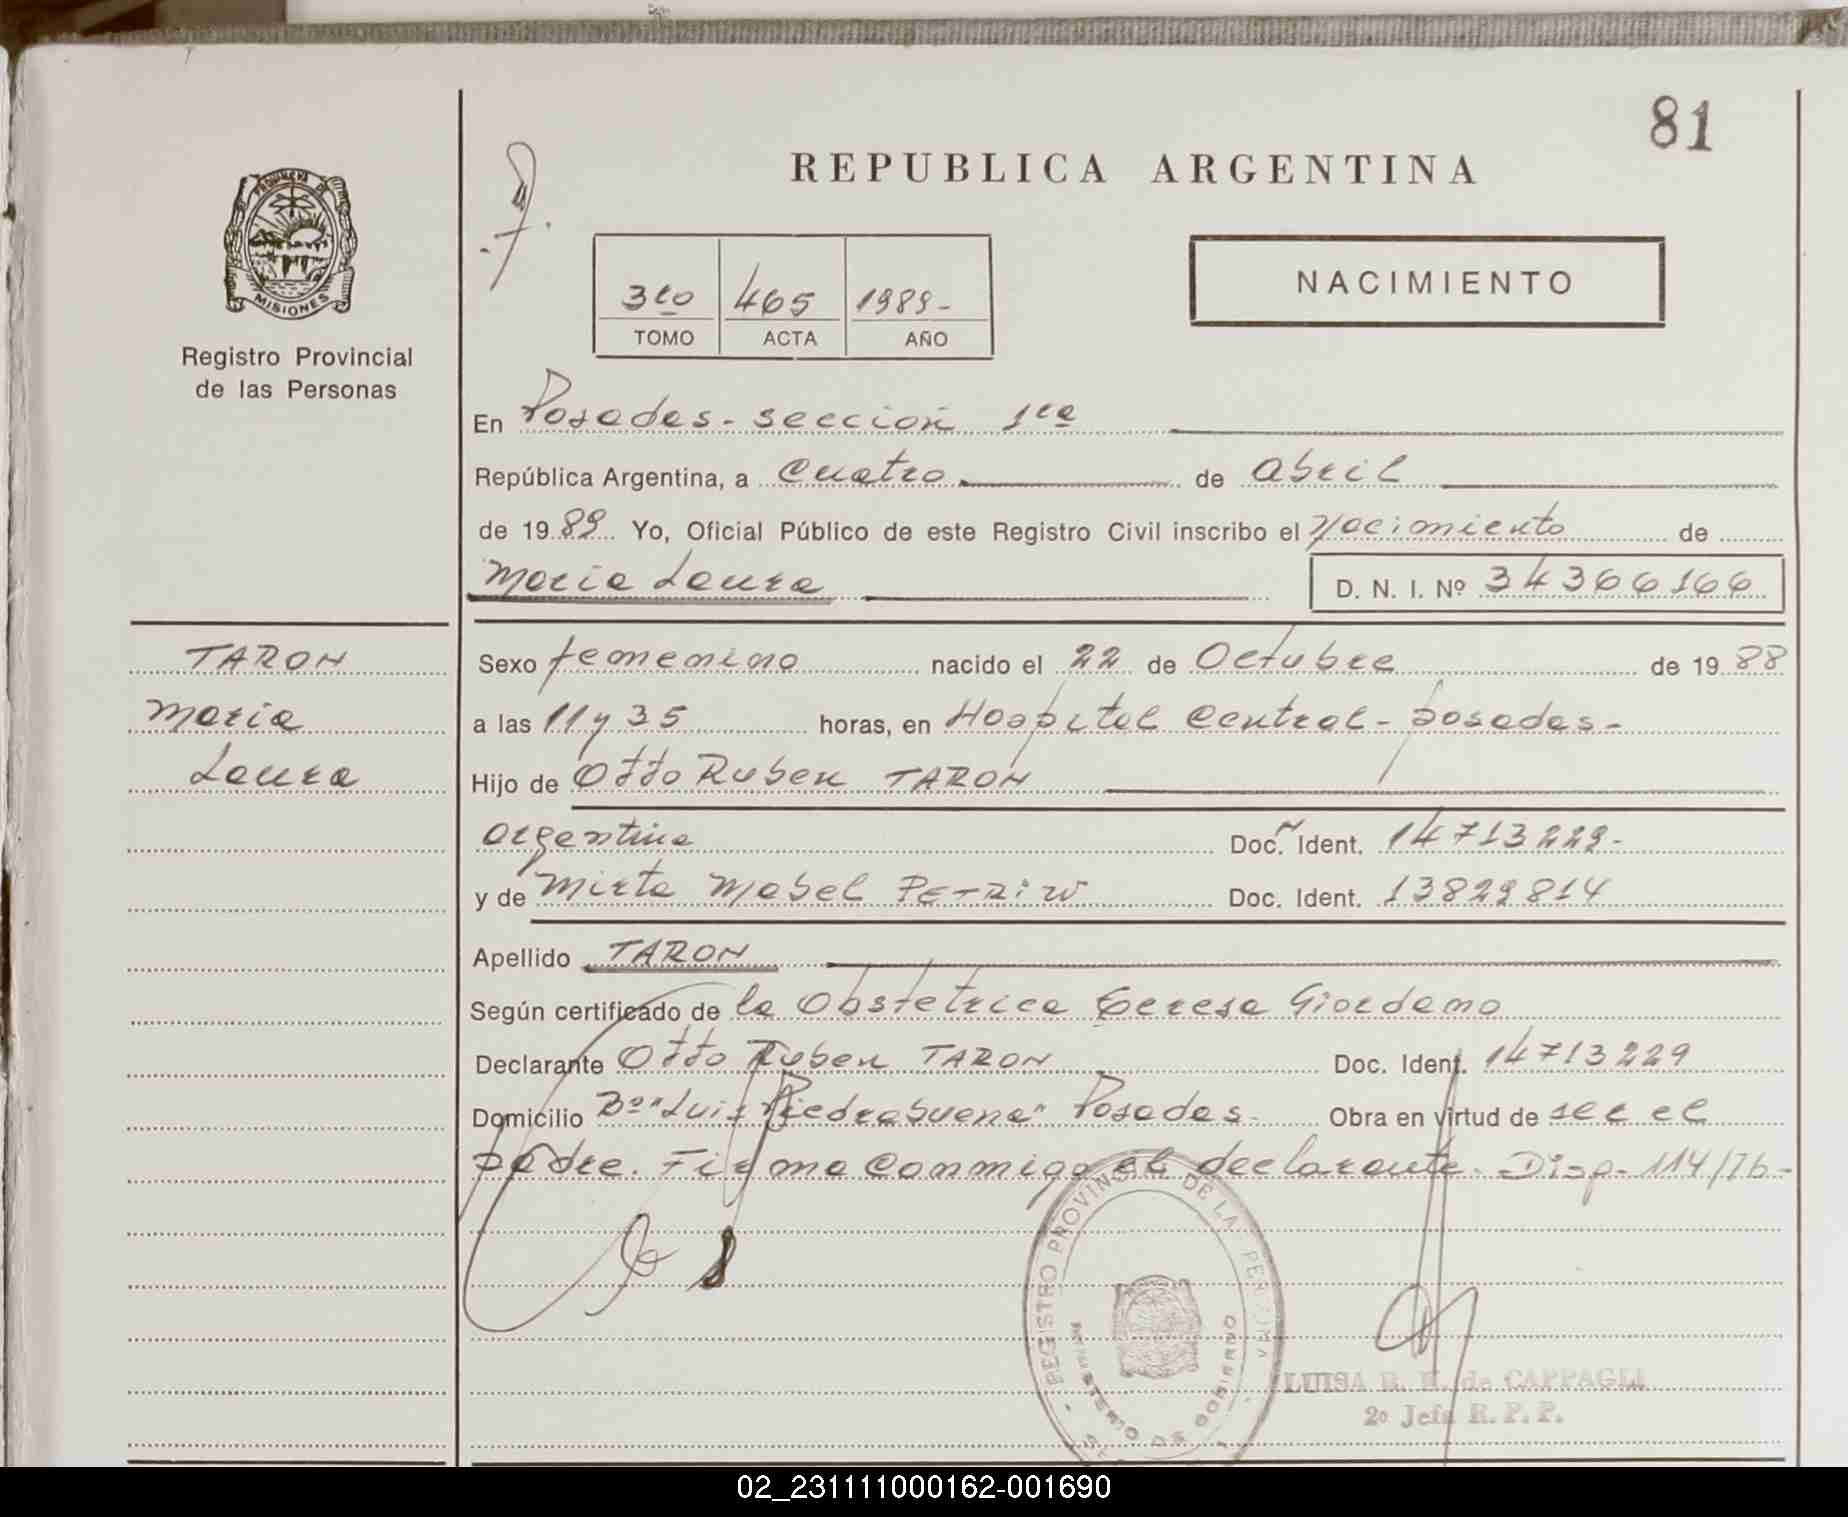 81
REPUBLICA ARGENTINA
PROVINCIA DE
MISIONES
Registro Provincial
de las Personas
3ro 465 1989-
TOMO ACTA AÑO
NACIMIENTO
En Posadas - sección 1ra
República Argentina, a cuatro de abril
de 1989 Yo, Oficial Público de este Registro Civil inscribo el Nacimiento de
Maria Laura D. N. I. Nº 34366166
TARON
Maria
Laura
Sexo femenino nacido el 22 de Octubre de 1988
a las 11 y 35 horas, en Hospital Central - posadas -
Hijo de Otto Ruben TARON
Argentina Doc. Ident. 14713229-
y de Mirta Mabel PETRiW Doc. Ident. 13829814
Apellido TARON
Según certificado de la Obstetrica Teresa Giordano
Declarante Otto Ruben TARON Doc. Ident. 14713229
Domicilio Bº "Luis Piedrabuena" Posadas- Obra en virtud de ser el
padre. Firma conmigo el declarante. Disp- 114/76-
REGISTRO PROVINCIAL DE LA PERSONA
MINISTERIO DE GOBIERNO
LUISA de CAPPAGLI
2º Jefa R.P.P.
02_231111000162-001690